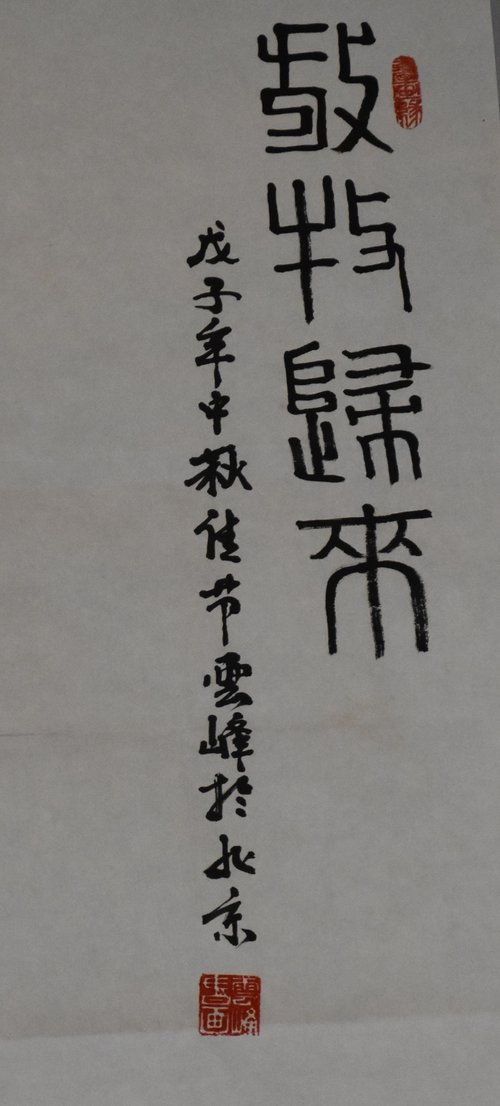 放牧歸來
戊子年中秋佳节雲峰於北京
雲峰
書画